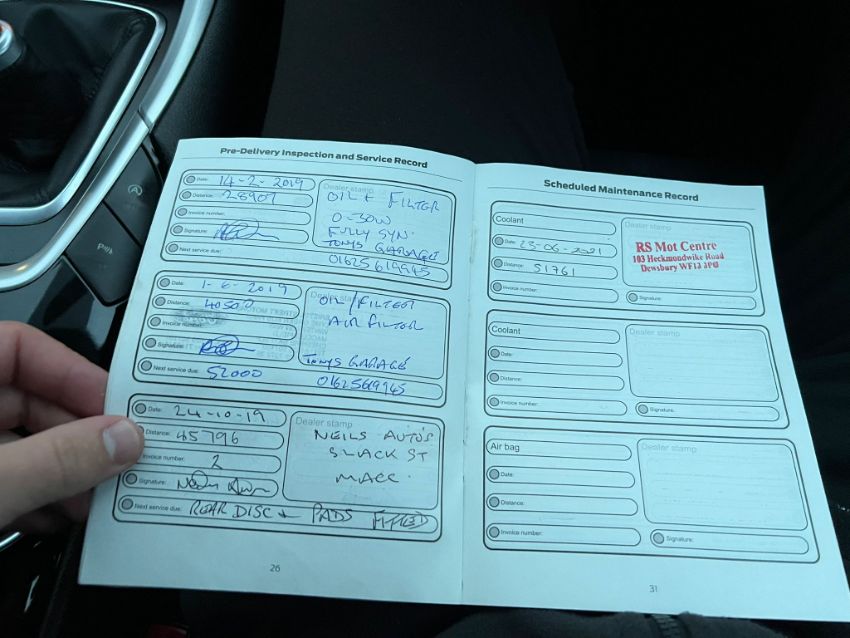 Pre-Delivery Inspection and Service Record
Date: 14-2-2019
Distance: 28907
Invoice number:
Signature:
Next service due:
Dealer stamp
OIL + FILTER
0-30W
FULLY SYN.
TONYS GARAGE
01625619945
Date: 1-6-2019
Distance: 40500
Invoice number:
Signature:
Next service due: 52000
OIL/FILTER
AIR FILTER
TONYS GARAGE
01625619945
Date: 24-10-19
Distance: 45796
Invoice number: 2
Signature:
Next service due: REAR DISC + PADS FITTED
Dealer stamp
NEILS AUTO'S
SLACK ST
MACC.
26
Scheduled Maintenance Record
Coolant
Date: 23-06-2021
Distance: 51761
Invoice number:
Dealer stamp
RS Mot Centre
103 Heckmondwike Road
Dewsbury WF13 3PG
Signature:
Coolant
Date:
Distance:
Invoice number:
Dealer stamp
Signature:
Air bag
Date:
Distance:
Invoice number:
Dealer stamp
Signature:
31